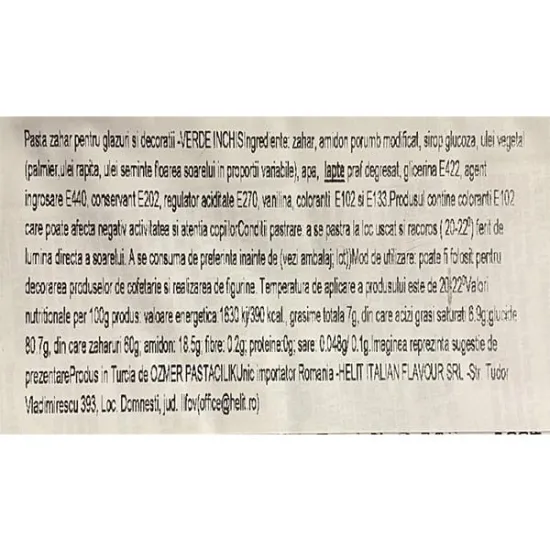 Pasta zahar pentru glazuri si decoratii -VERDE INCHISIngrediente: zahar, amidon porumb modificat, sirop glucoza, ulei vegetal
(palmier,ulei rapita, ulei seminte floarea soarelui in proportii variabile), apa, lapte praf degresat, glicerina E422, agent
ingrosare E440, conservant E202, regulator aciditate E270, vanilina, coloranti E102 si E133.Produsul contine coloranti E102
care poate afecta negativ activitatea si atentia copiilorConditii pastrare: a se pastra la loc uscat si racoros ( 20-22⁰) ferit de
lumina directa a soarelui. A se consuma de preferinta inainte de (vezi ambalaj; lot))Mod de utilizare: poate fi folosit pentru
decorarea produselor de cofetarie si realizarea de figurine. Temperatura de aplicare a produsului este de 20-22⁰Valori
nutritionale per 100g produs: valoare energetica 1630 kj/390 kcal, grasime totala 7g, din care acizi grasi saturati 6.9g;glucide
80.7g, din care zaharuri 60g, amidon: 18.5g; fibre: 0.2g; proteine:0g, sare: 0.048g/ 0.1g.Imaginea reprezinta sugestie de
prezentareProdus in Turcia de OZMER PASTACILIKUnic importator Romania -HELIT ITALIAN FLAVOUR SRL -Str. Tudor
Vladimirescu 393, Loc. Domnesti, jud. Ilfov(office@helit.ro)